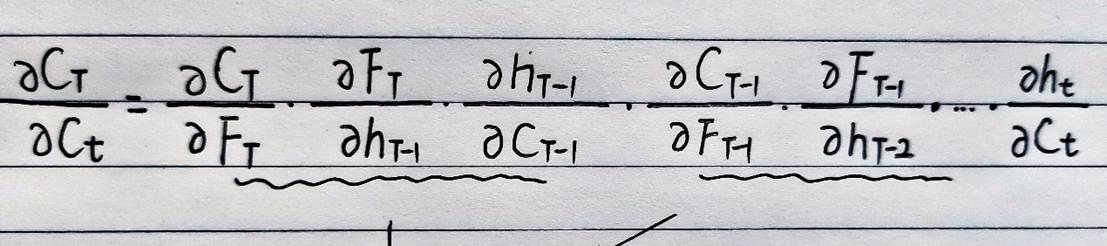 ∂C_T/∂C_t = ∂C_T/∂F_T · ∂F_T/∂h_{T-1} · ∂h_{T-1}/∂C_{T-1} · ∂C_{T-1}/∂F_{T-1} · ∂F_{T-1}/∂h_{T-2} · ... · ∂h_t/∂C_t